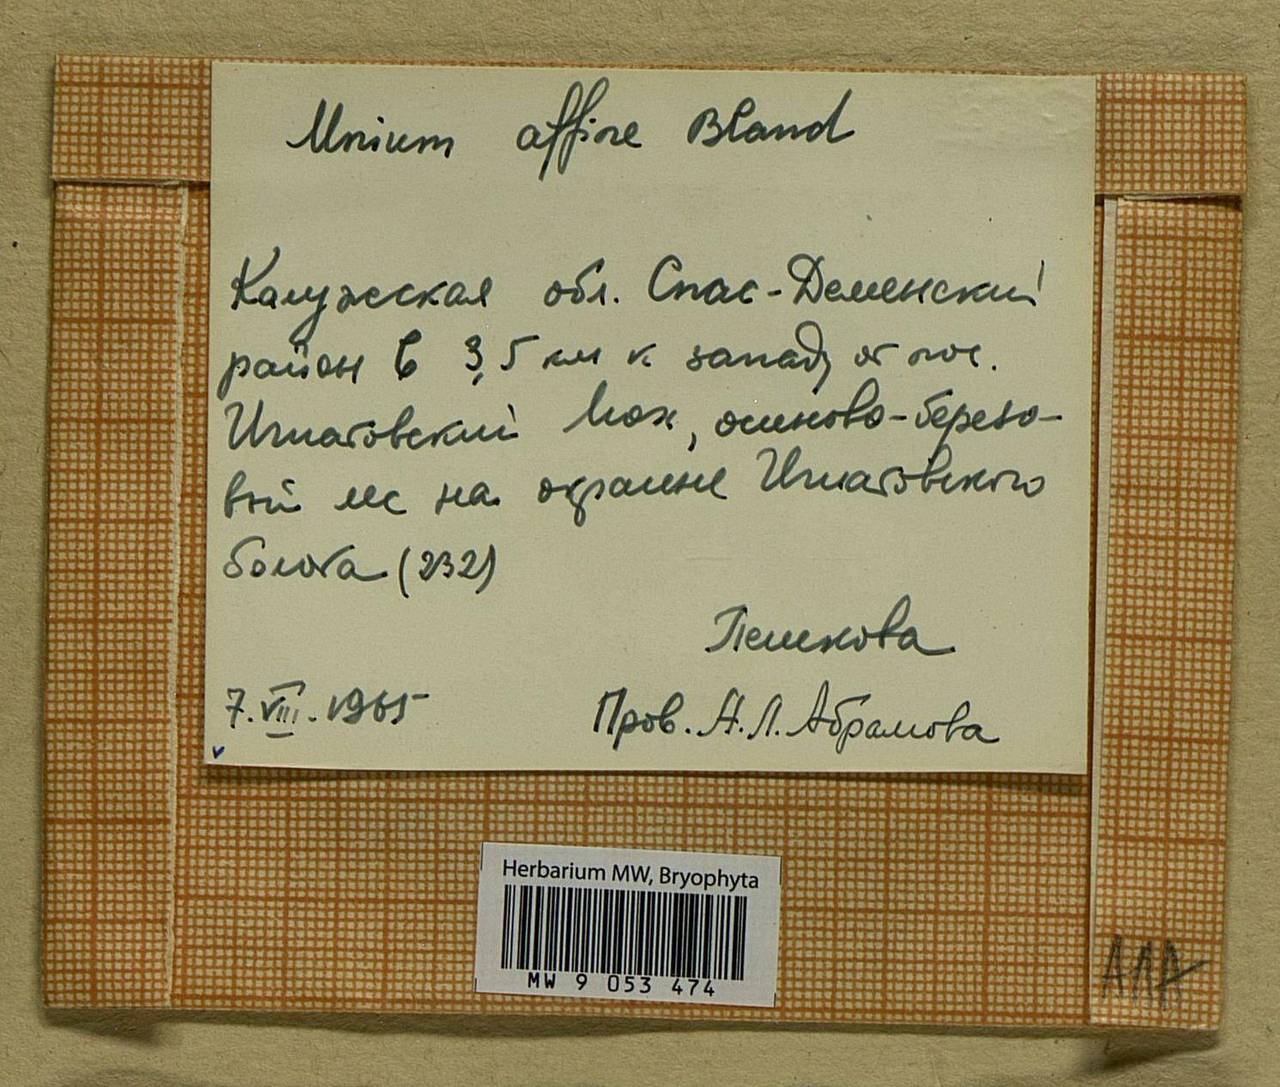 Mnium affine Bland
Калужская обл. Спас-Деменский
район в 3,5 км к западу от пос.
Игнатовский Мох, осиново-березо-
вый лес на окраине Игнатовского
болота (232)
Пешкова
7.VIII.1965
Пров. А.Л. Абрамова
v
Herbarium MW, Bryophyta
MW 9 053 474
АЛА